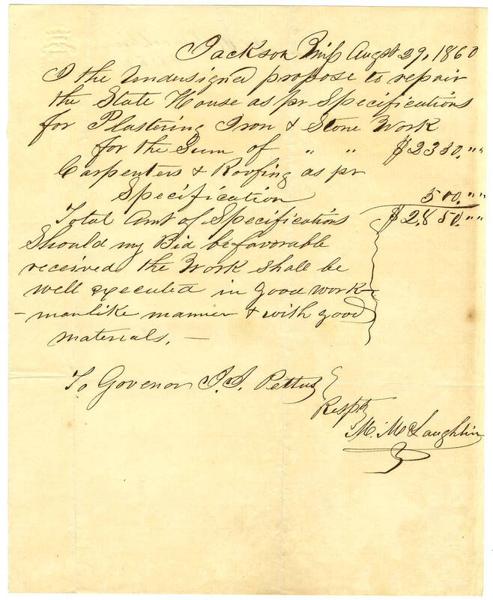 Jackson Miss Augst 29, 1860
I the Undersigned propose to repair
the State House as pr Specifications
for Plastering Iron & Stone Work
for the Sum of " " $2350."
Carpenters & Roofing as pr
Specification 500."
Total Amt of Specifications $2,850."
Should my Bid be favorable
received the Work shall be
well executed in good work-
-manlike manner & with good
materials. —
To Govenor J. J. Pettus
Respty
M. McLaughlin